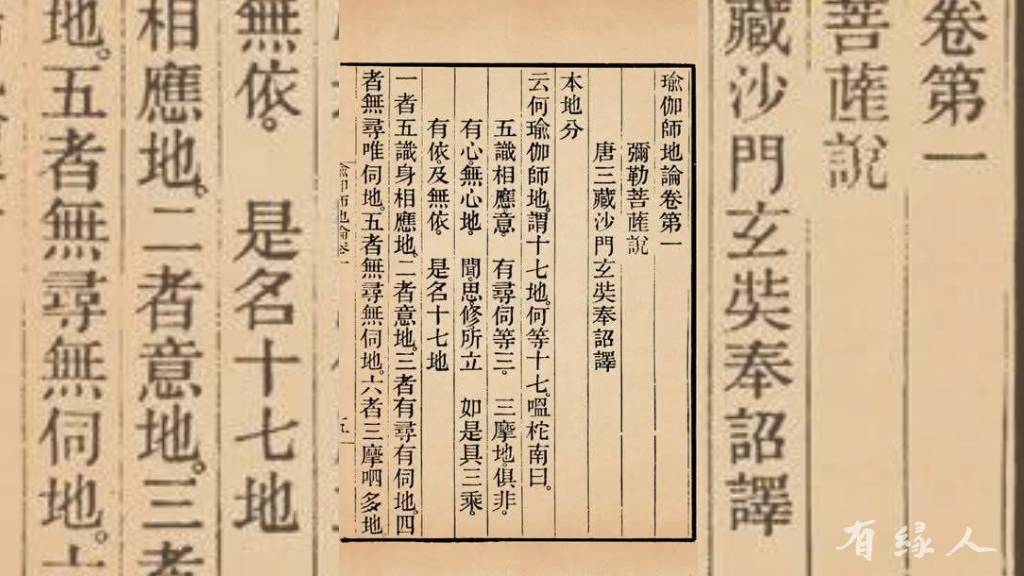 卷第一
菩薩說
藏沙門玄奘奉詔譯
瑜伽師地論卷第一
彌勒菩薩說
唐三藏沙門玄奘奉詔譯
本地分
云何瑜伽師地。謂十七地。何等十七。嗢柁南曰。
五識相應意。　有尋伺等三。　三摩地俱非。
有心。無心地。　聞思修所立　如是具三乘。
有依。及無依。　是名十七地
一者五識身相應地。二者意地。三者有尋有伺地。四
者無尋唯伺地。五者無尋無伺地。六者三摩呬多地
無依。　是名十七地
相應地。二者意地。三者
地。五者無尋無伺地。
有緣人